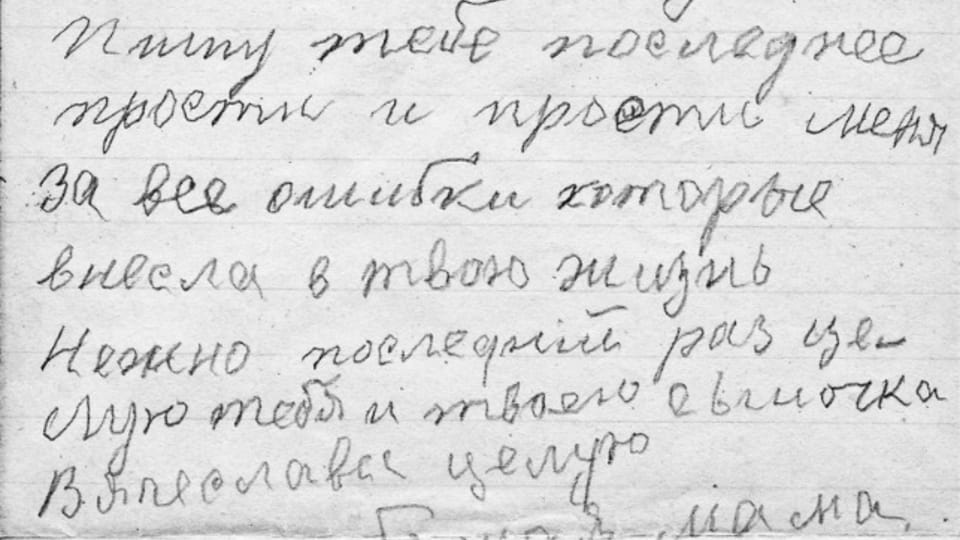 Пишу тебе последнее
прости и прости меня
за все ошибки которые
внесла в твою жизнь
Нежно последний раз це-
лую тебя и твоего сыночка
Вячеслава целую
мама.